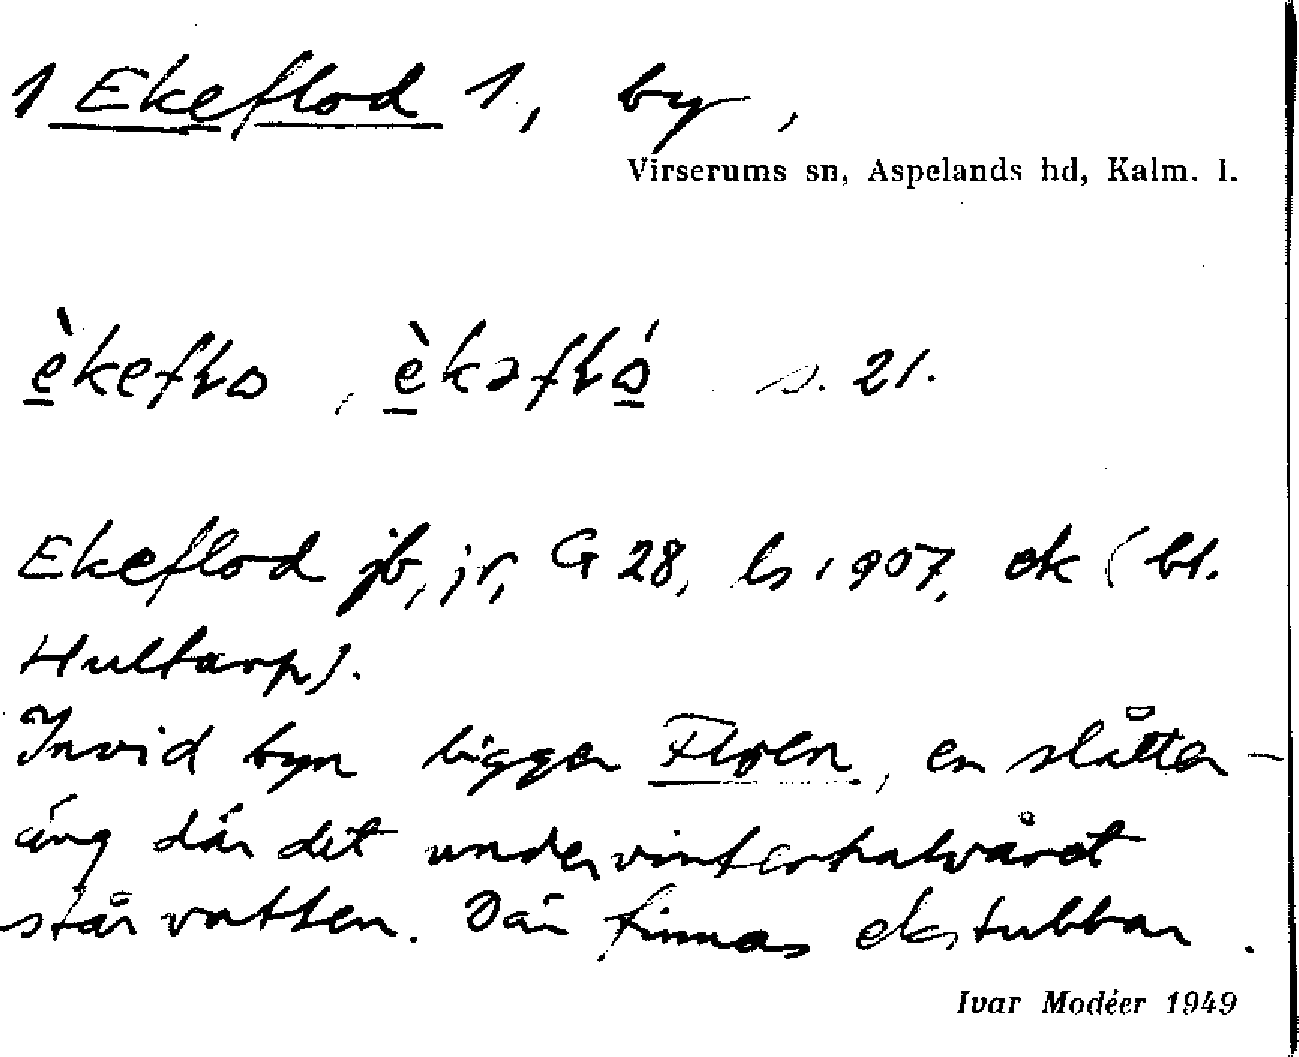 1 Ekeflod 1, by,
Virserums sn, Aspelands hd, Kalm. l.
èkeflo, èkəfló s. 21.
Ekeflod jb, jr, G 28, ls 1907, ek (bl.
Hultarp).
Invid byn ligger Floen, en slåtter-
äng där det under vinterhalvåret
står vatten. Där finnas ekstubbar.
Ivar Modéer 1949